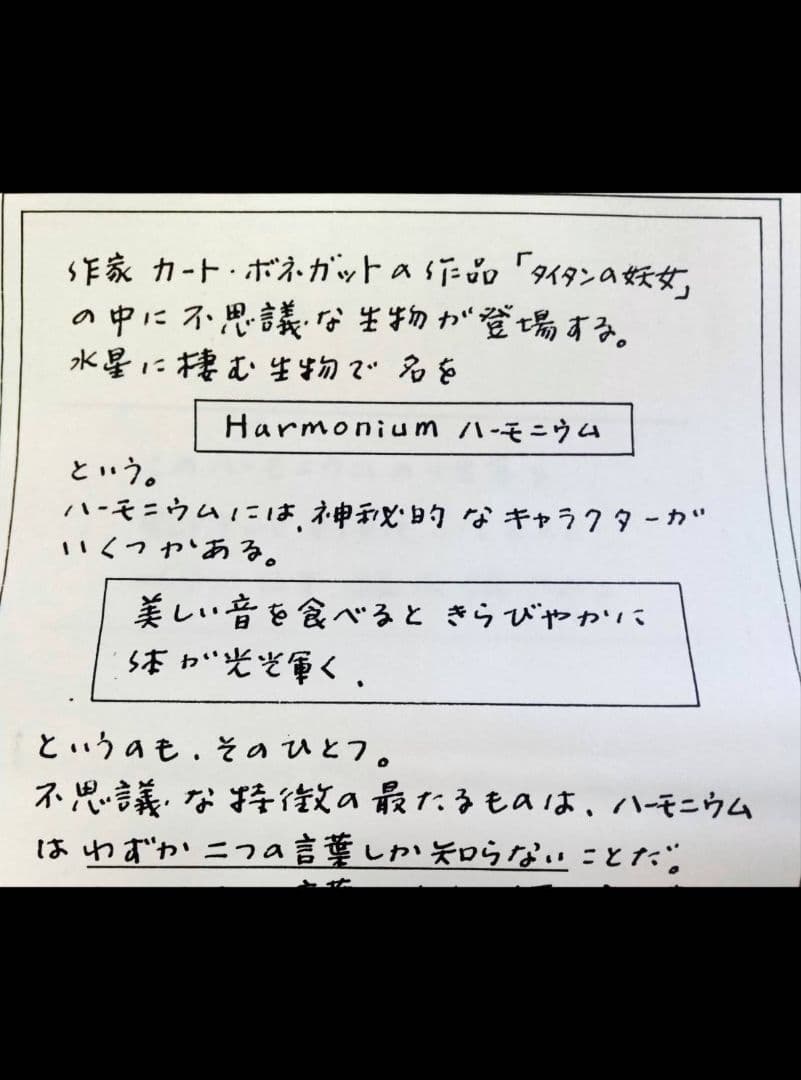 作家 カート・ボネガットの作品「タイタンの妖女」
の中に不思議な生物が登場する。
水星に棲む生物で 名を
Harmonium ハーモニウム
という。
ハーモニウムには、神秘的なキャラクターが
いくつかある。
美しい音を食べると きらびやかに
体が光輝く、
というのも、そのひとつ。
不思議な特徴の最たるものは、ハーモニウム
はわずか二つの言葉しか知らないことだ。